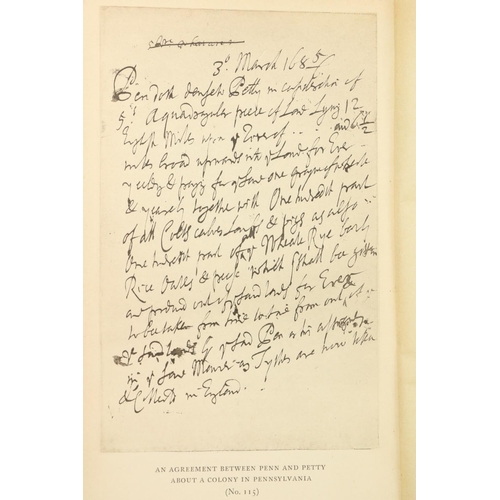 3º March 1685/6
Penn doth demise Petty in consideration of
5s A quadrangular piece of Land Lying 12
English Miles upon ye River of . . . and 6 1/2
miles broad upwards into ye Land for Ever
& paying for ye Land one
& yearely together with One hundredth part
of all Colts calves Lambs & pigs as also
One hundredth part of ye Wheate Rye barly
Rice Oates & pease which shall bee gotten
and produced out of ye said lands for Ever &
to be taken from time to time from out of
ye said lands by ye said Penn or his
in ye same Manner as Tythes are now taken
& Collected in England.
AN AGREEMENT BETWEEN PENN AND PETTY
ABOUT A COLONY IN PENNSYLVANIA
(No. 115)